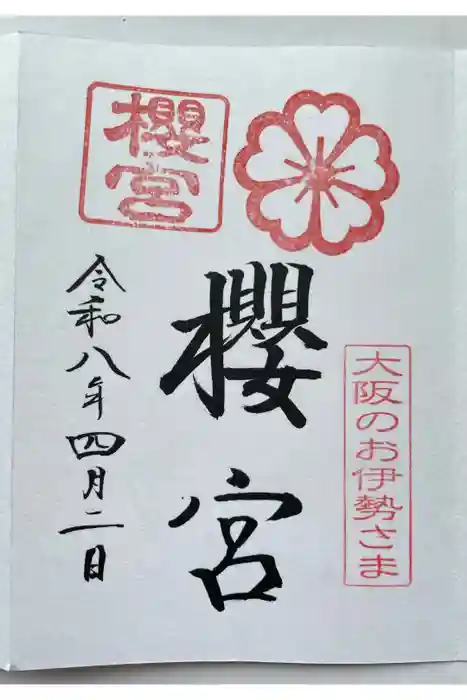 大阪のお伊勢さま
櫻宮
櫻宮
令和八年四月二日